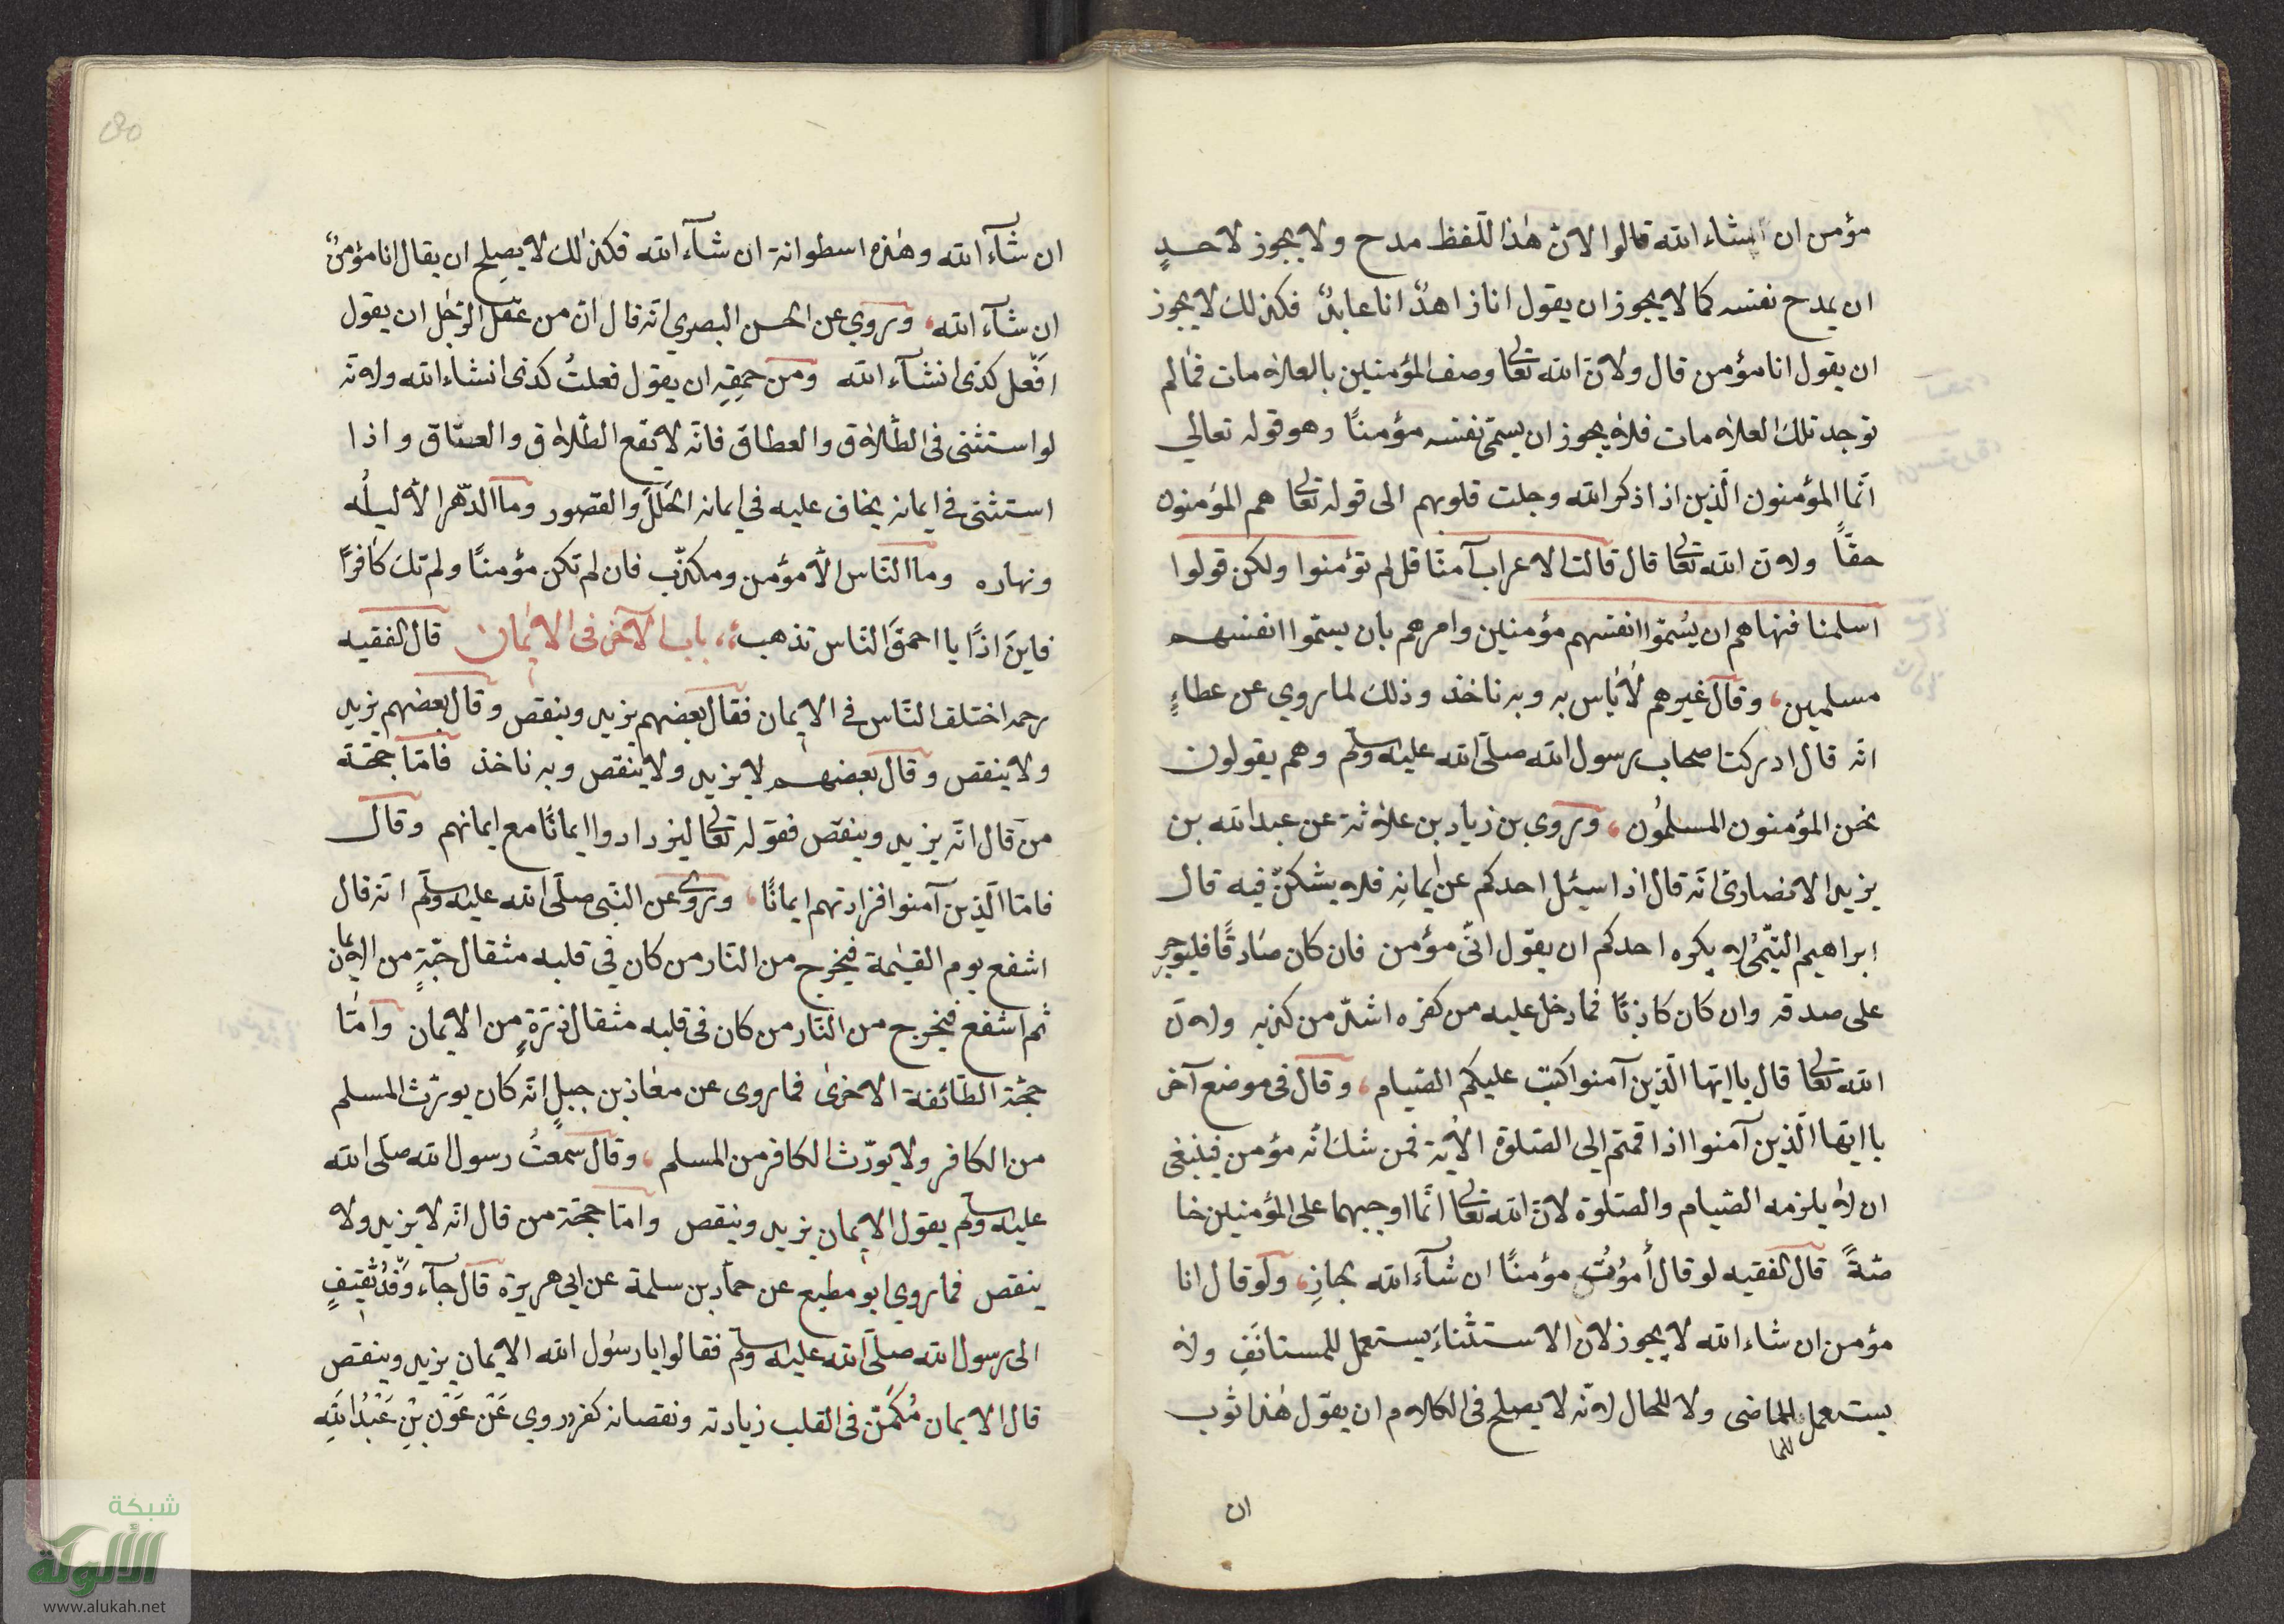 مؤمن ان انشاء الله قالوا لانّ هٰذا اللّفظ مدح ولا يجوز لاحدٍ
ان يمدح نفسه كما لا يجوز ان يقول انا زاهدٌ انا عابدٌ فكذلك لا يجوز
ان يقول انا مؤمن قال ولانّ الله تعالى وصف المؤمنين بالعلامات فما لم
توجد تلك العلامات فلا يجوز ان يسمّى نفسه مؤمنًا وهو قوله تعالي
انّما المؤمنون الّذين اذا ذكر الله وجلت قلوبهم الى قوله تعالى هم المؤمنون
حقًّا ولانّ الله تعالى قال قالت الاعراب آمنّا قل لم تؤمنوا ولكن قولوا
اسلمنا فنهاهم ان يُسمّوا انفسهم مؤمنين وامرهم بان يسمّوا انفسهم
مسلمين، وقال غيرهم لا باس به وبه ناخذ وذلك لما روي عن عطاءٍ
انّه قال ادركت اصحاب رسول الله صلّى الله عليه وسلّم وهم يقولون
نحن المؤمنون المسلمُون، وروي بن زياد بن علاثة عن عبد الله بن
يزيد الانصارىّ انّه قال اذا سيئل احدكم عن ايمانِه فلا يشكنّ فيه قال
ابراهيم التّيمىُ لا يكره احدكم ان يقول انّى مؤمن فان كان صادقًا فليوجرِ
على صدقه وان كان كاذبًا فما دخل عليه من كفره اشدّ من كذبه ولانّ
الله تعالى قال يا ايّها الّذين آمنوا كتب عليكم الصّيام، وقال فى موضع آخر
يا ايّها الّذين آمنوا اذا قمتم الى الصّلوة الآية فمن شك انّه مؤمن فينبغى
ان لا يلزمه الصّيام والصّلوة لانّ الله تعالى انّما اوجبهما على المؤمنين خا
صّةً قال الفقيه لو قال أموُتُ مؤمنًا ان شآء الله بجازِ، ولو قال انا
مؤمن ان شاء الله لا يجوز لانّ الاستثناءَ يستعمل للمستانَفِ ولا
يستعمل للماضى ولا للحال لانّه لا يصلح فى الكلام ان يقول هٰذا ثوب
للما
ان
ان شآء الله وهٰذه اسطوانة ان شآء الله فكذٰلك لا يصلح ان يقال انا مؤمنٌ
ان شآء الله، وروي عن الحسن البصري انّه قال انّ من عقل الرّجل ان يقول
افعل كذى انشآء الله ومن حمقِهِ ان يقول فعلتُ كذى انشاء الله ولانّه
لو استثنى فى الطّلاق والعطاق فانّه لا يقع الطّلاق والعتاق واذا
استثنى فى ايمانه يخاف عليه فى ايمانه الخلل والقصور وما الدّهر الّا ليلُه
ونهاره وما النّاس الّا مؤمن ومكذّب فان لم تكن مؤمنًا ولم تك كافرًا
فاينَ اذًا يا احمقَ النّاس تذهب، باب الآخر فى الايمان قال الفقيه
رحمه اختلف النّاس فى الايمان فقال بعضهم يزيد وينقص وقال بعضهم يزيد
ولا ينقص وقال بعضهم لا يزيد ولا ينقص وبه ناخذ فامّا حجّة
من قال انّه يزيد وينقص فقوله تعالى ليزدادوا ايمانًا مع ايمانهم وقال
فامّا الّذين آمنوا فزادتهم ايمانًا، وروى عن النّبى صلّى الله عليه وسلّم انّه قال
اشفع يوم القيٰمة فيخرج من النّار من كان فى قلبه مثقال حبّةٍ من الايمان
ثم اشفع فيخرج من النّار من كان فى قلبه مثقال ذرّةٍ من الايمان وامّا
حجّة الطّائفة الاخرىٰ فما روى عن معٰاذ بن جبلٍ انّه كان يورّث المسلم
من الكافر ولا يورّث الكافر من المسلم، وقال سمعتُ رسول الله صلّى الله
عليه وسلّم يقول الايمان يزيد وينقص وامّا حجّة من قال انّه لا يزيد ولا
ينقص فما روي ابو مطيع عن حمّاد بن سلمة عن ابى هريرة قال جآء وَفْدُ ثقيفٍ
الى رسول الله صلّى الله عليه وسلّم فقالوا يا رسُول الله الايمان يزيد وينقص
قال الايمان مُكمّن فى القلب زيادته ونقصانه كفر وروي عَن عَوْن بْنِ عَبْدِ اللهِ
شبكة
الألوكة
www.alukah.net